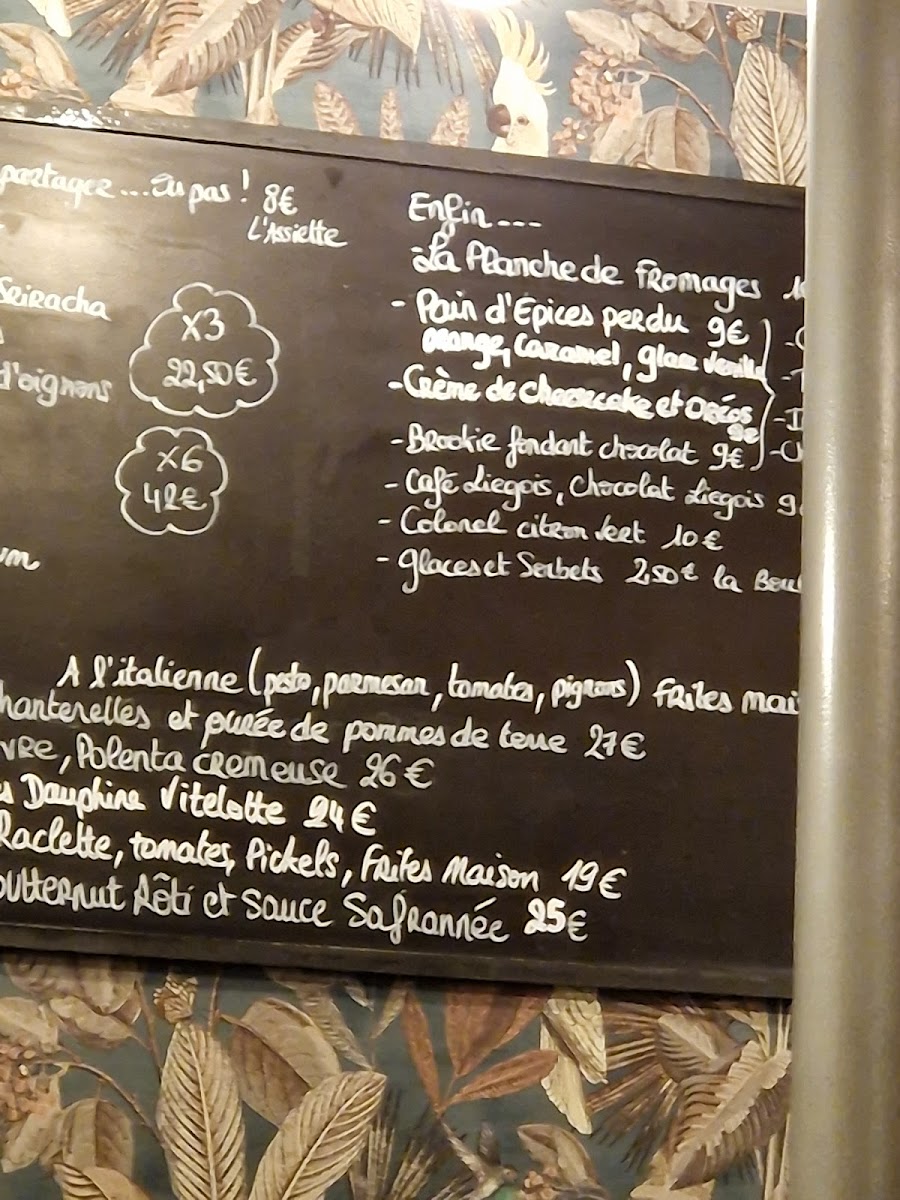 partager... Ou pas ! 8€
L'Assiette
Sriracha
d'oignons
x3
22,50€
x6
42€
Enfin ...
- La Planche de Fromages
- Pain d'Epices perdu 9€
orange, caramel, glace vanille
- Crème de cheesecake et Oréos
9€
- Brookie fondant chocolat 9€
- Café Liegois, Chocolat Liegois 9
- Colonel citron vert 10€
- Glaces et Sorbets 2,50€ la Boul
A l'italienne (pesto, parmesan, tomates, pignons) Frites mai
hanterelles et purée de pommes de terre 27€
vre, Polenta cremeuse 26€
s Dauphine Vitelotte 24€
Raclette, tomates, Pickels, Frites Maison 19€
outternut Rôti et sauce Safrannée 25€